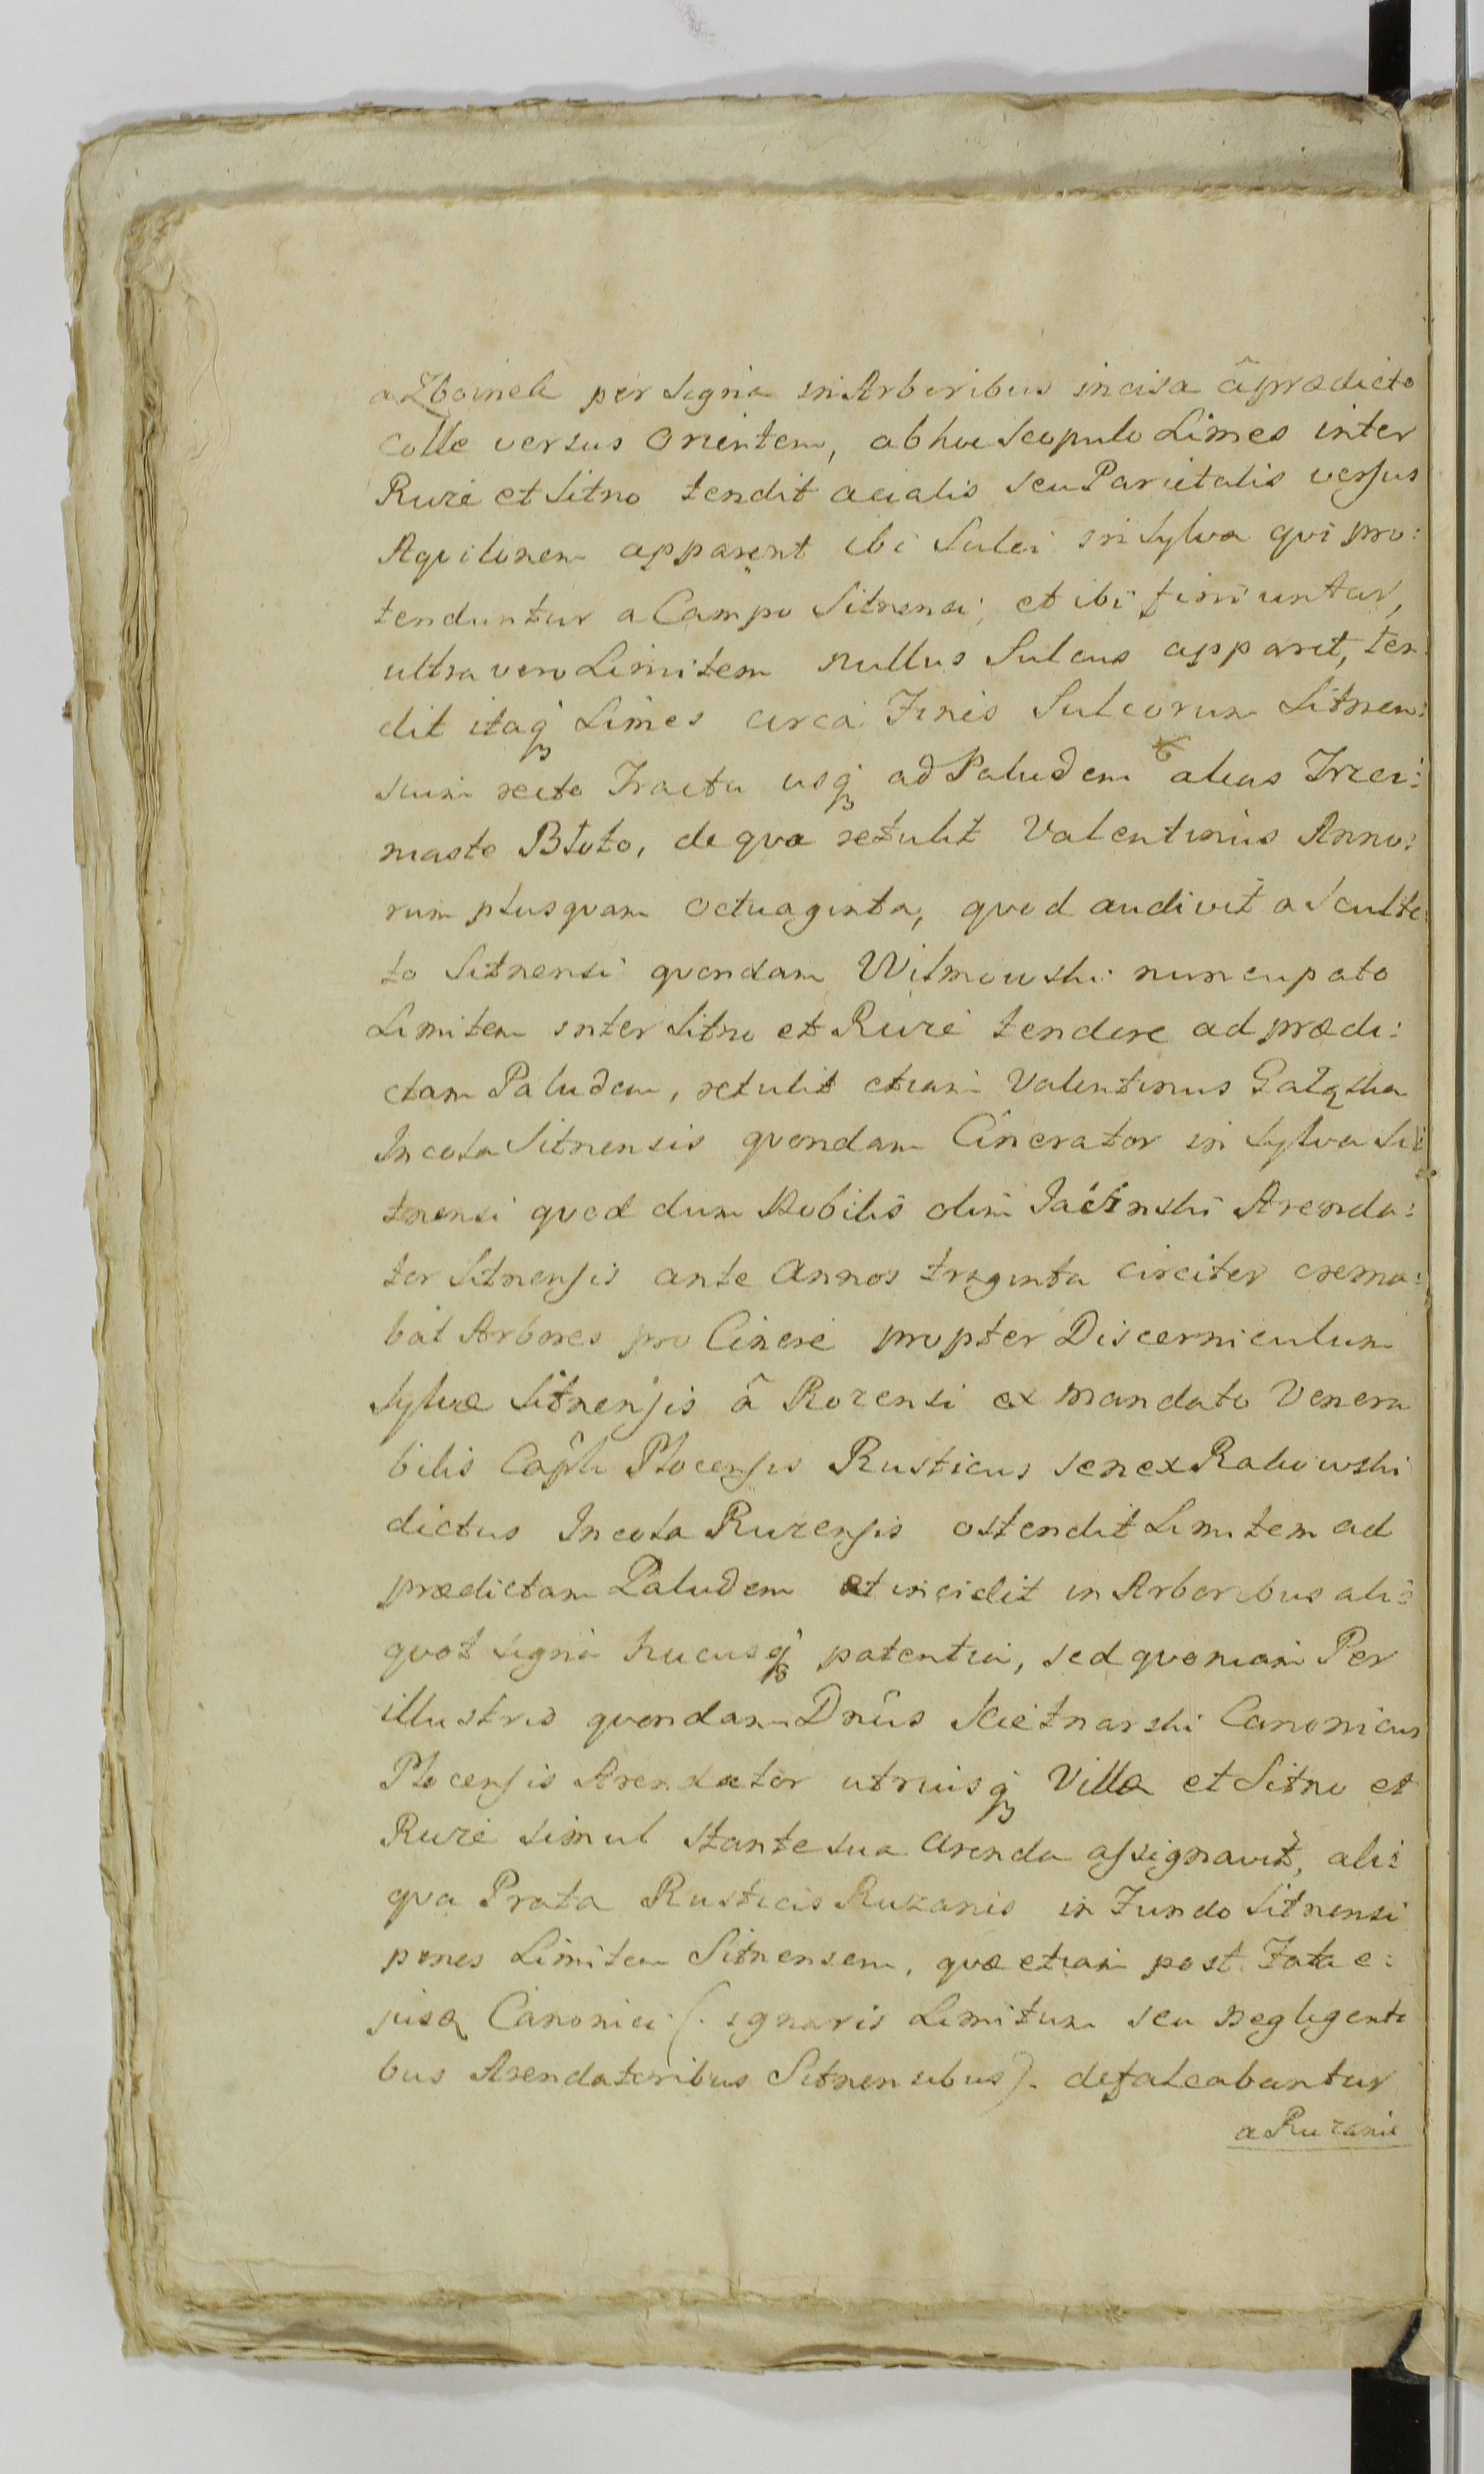 a Zboinek per Signa in Arboribus incisa â prædicto
colle versus Orientem, ab hoc Scopulo Limes inter
Ruże et Sitno tendit acialis seu Parietalis versus
Aqvilonem apparent ibi Sulci in Sylva qvi pro:
tenduntur a Campo Sitnensi, et ibi finiuntur,
ultra vero Limitem nullus Sulcus apparet, ten:
dit itaq Limes circa Finis Sulcorum Sitnen:
sium recto Tractu usq ad Paludem alias Trzci:
niaste Błoto, de qva retulit Valentinus Anno:
rum plusqvam octuaginta, qvod audivit a Sculte:
to Sitnensi qvondam Wilmowski nuncupato
Limitem inter Sitno et Ruże tendere ad prædi:
ctam Paludem, retulit etiam Valentinus Gałąska
Incola Sitnensis qvondam Cinerator in Sylva Si:
tnensi qvod dum Nobilis olim Jaciński Arenda:
tor Sitnensis ante Annos triginta circiter crema:
bat Arbores pro Cinere propter Discerniculum
Sylvæ Sitnensis â Rozensi ex mandato Venera
bilis Capli Plocensis Rusticus senex Rakowski
dictus Incola Ruzensis ostendit Limitem ad
prædictam Paludem et incidit in Arboribus ali:
qvot signa hucusq patentia, sed qvoniam Per
illustris qvondam Dnus Kietnarski Canonicus
Plocensis Arendator utriusq Villæ et Sitno et
Ruże simul stante sua Arenda assignavit, ali:
qva Prata Rusticis Ruzanis in Fundo Sitnensi
penes Limitem Sitnensem, qvæ etiam post Fata e:
jusq Canonici (. ignaris Limitum seu negligenti
bus Arendatoribus Sitnensibus). defalcabantur
a Ruzanis